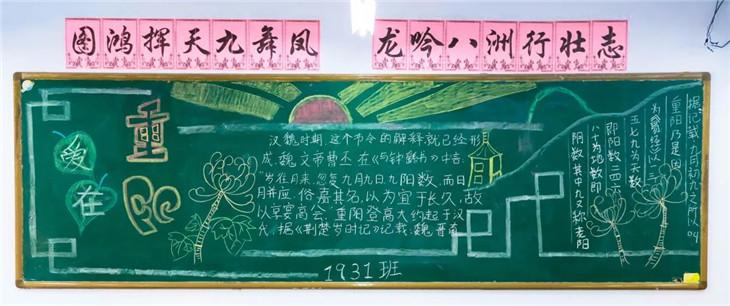 图鸿挥天九舞凤
龙吟八洲行壮志
爱在
重阳
汉魏时期,这个节令的解释就已经形
成.魏文帝曹丕在《与钟繇书》中言:
"岁在月来,忽复九月九日,九阳数,而日
月并应,俗嘉其名,以为宜于长久,故
以享宴高会。重阳登高大约起于汉
代,据《荆楚岁时记》记载,魏晋南
据记载,九月初九之所以叫
重阳乃是因
为《易经》以一三
五七九为天数
即阳数二四六
八十为地数即
阴数其中九又称老阳
1931班